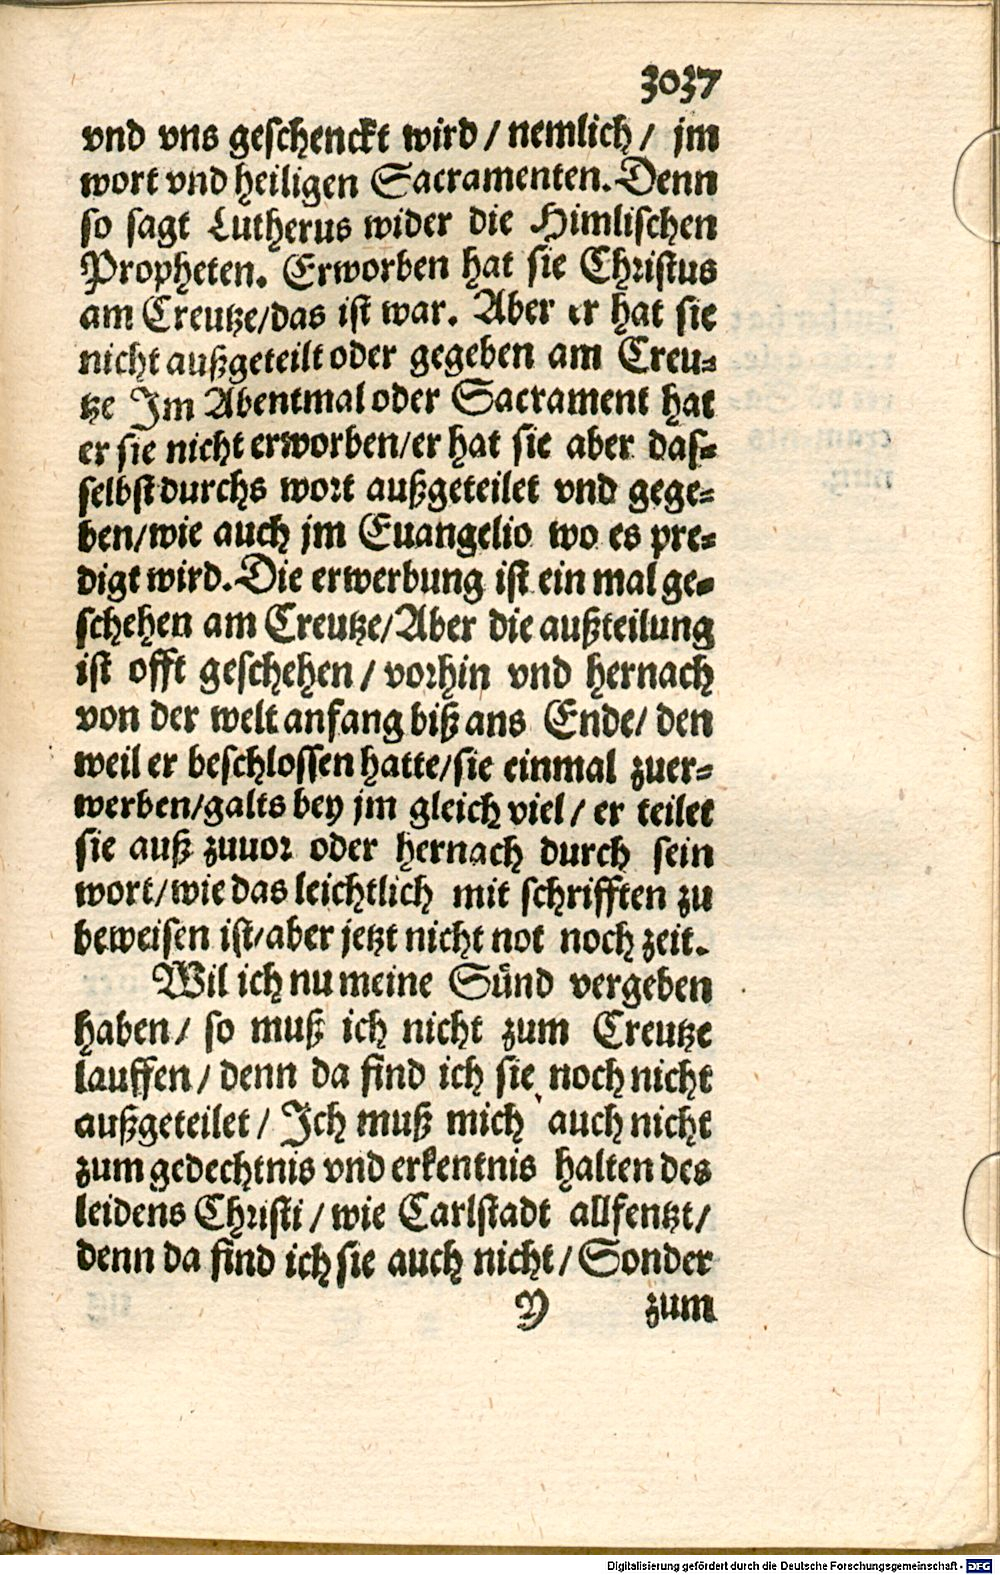 3037
vnd vns geschenckt wird / nemlich / jm
wort vnd heiligen Sacramenten. Denn
so sagt Lutherus wider die Himlischen
Propheten. Erworben hat sie Christus
am Creutze/das ist war. Aber er hat sie
nicht außgeteilt oder gegeben am Creu⸗
tze Im Abentmal oder Sacrament hat
er sie nicht erworben/er hat sie aber das⸗
selbst durchs wort außgeteilet vnd gege⸗
ben/wie auch jm Euangelio wo es pre⸗
digt wird. Die erwerbung ist ein mal ge⸗
schehen am Creutze/Aber die außteilung
ist offt geschehen / vorhin vnd hernach
von der welt anfang biß ans Ende/ den
weil er beschlossen hatte/sie einmal zuer⸗
werben/galts bey jm gleich viel / er teilet
sie auß zuuor oder hernach durch sein
wort/wie das leichtlich mit schrifften zu
beweisen ist/aber jetzt nicht not noch zeit.
Wil ich nu meine Sünd vergeben
haben / so muß ich nicht zum Creutze
lauffen / denn da find ich sie noch nicht
außgeteilet / Ich muß mich auch nicht
zum gedechtnis vnd erkentnis halten des
leidens Christi / wie Carlstadt allfentzt/
denn da find ich sie auch nicht / Sonder
Y zum
Digitalisierung gefördert durch die Deutsche Forschungsgemeinschaft - DFG